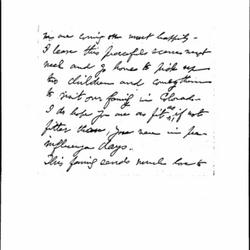 are coming on most happily -
I leave this peaceful scenes next
week and go home to pick up
two children and
to visit our family in Colorado -
I do hope you are as fit as if not
fitter than you were in pre
influenza days.
This family sends much love to